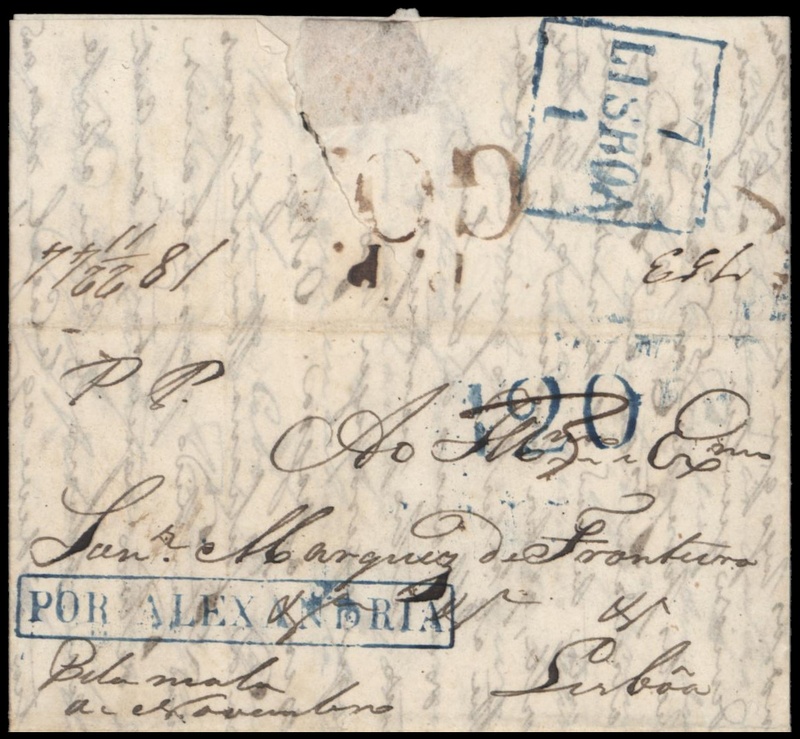 7
LISBOA
1
1844
22
11
753
P. P.
120
Ao Illmo e Exmo
Senr. Marquez de Fronteira
POR ALEXANDRIA
Pela mala
de Novembro
Lisbôa